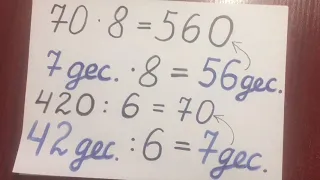 70 · 8 = 560
7 дес. · 8 = 56 дес.
420 : 6 = 70
42 дес. : 6 = 7 дес.